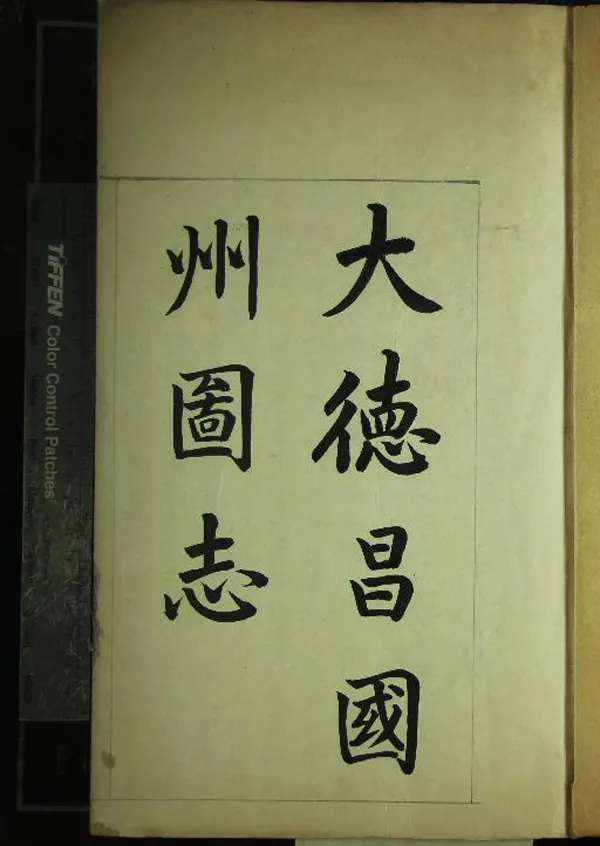 大德昌國
州圖志
TIFFEN Color Control Patches